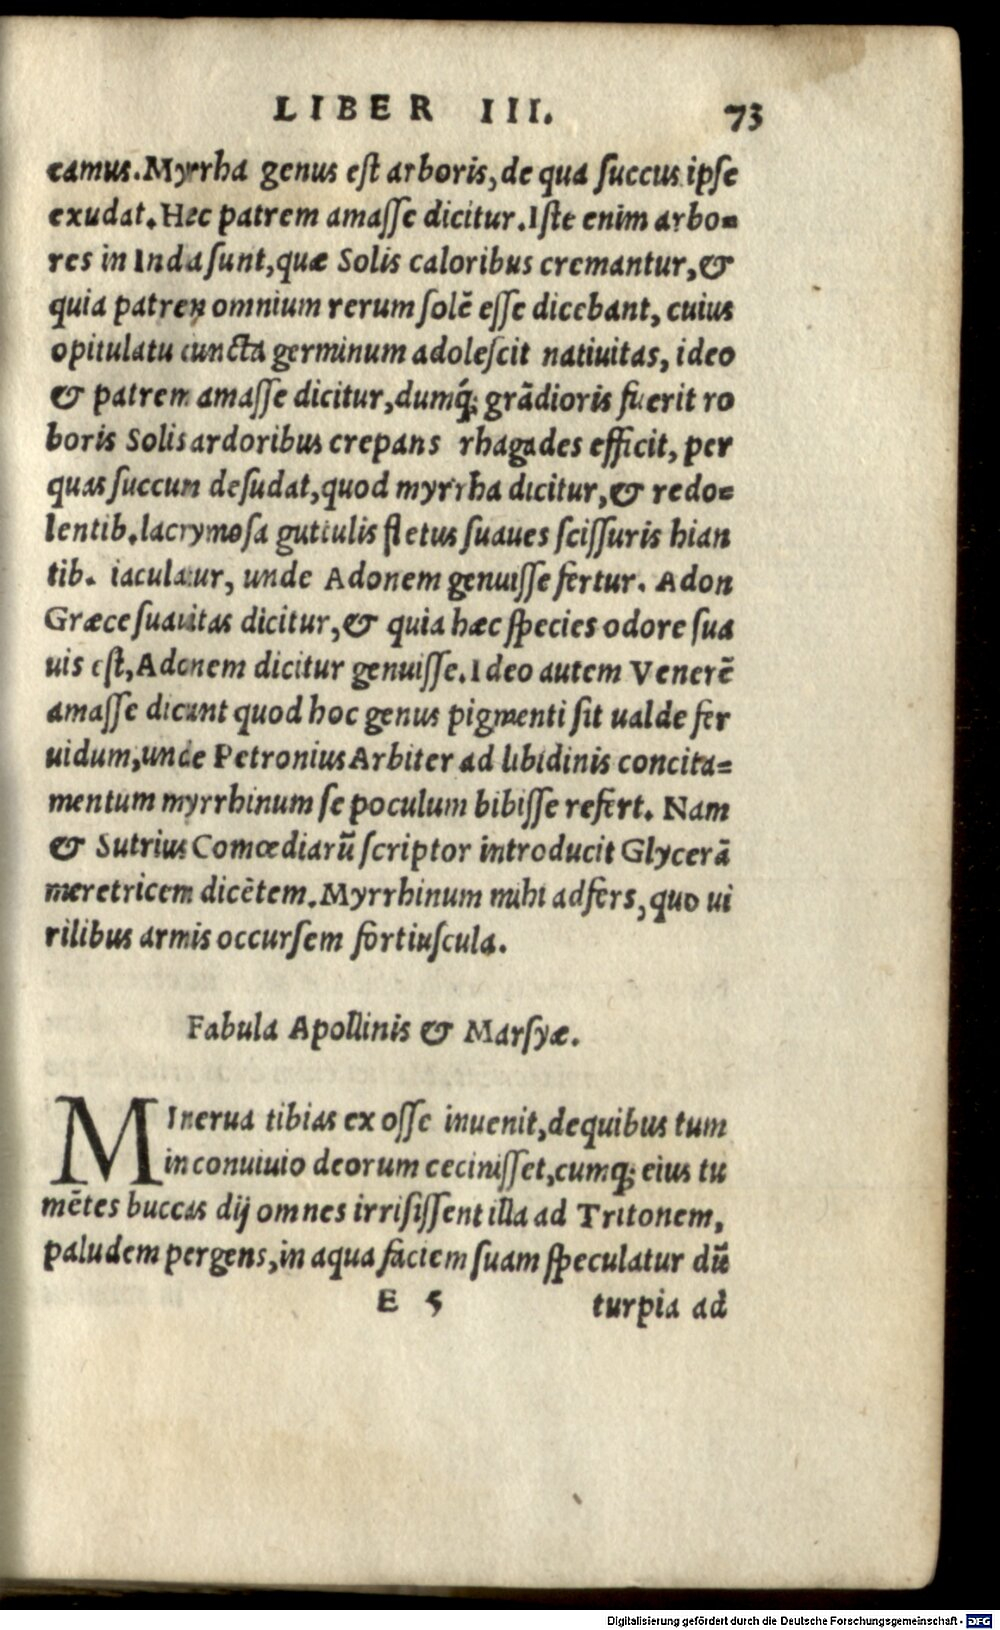 LIBER III. 73
camus. Myrrha genus est arboris, de qua succus ipse
exudat. Hec patrem amasse dicitur. Iste enim arbo=
res in Inda sunt, quæ Solis caloribus cremantur, &
quia patren omnium rerum solē esse dicebant, cuius
opitulatu cuncta germinum adolescit natiuitas, ideo
& patrem amasse dicitur, dumq́; grādioris fuerit ro
boris Solis ardoribus crepans rhagades efficit, per
quas succum desudat, quod myrrha dicitur, & redo=
lentib. lacrymosa guttulis fletus suaues scissuris hian
tib. iaculatur, unde Adonem genuisse fertur. Adon
Græce suauitas dicitur, & quia hæc species odore sua
uis est, Adonem dicitur genuisse. Ideo autem Venerē
amasse dicunt quod hoc genus pigmenti sit ualde fer
uidum, unde Petronius Arbiter ad libidinis concita=
mentum myrrhinum se poculum bibisse refert. Nam
& Sutrius Comœdiarū scriptor introducit Glycerā
meretricem dicētem. Myrrhinum mihi adfers, quo ui
rilibus armis occursem fortiuscula.
Fabula Apollinis & Marsyæ.
MInerua tibias ex osse inuenit, de quibus tum
in conuiuio deorum cecinisset, cumq; eius tu
mētes buccas dij omnes irrisissent illa ad Tritonem,
paludem pergens, in aqua faciem suam speculatur dū
E 5 turpia ad
Digitalisierung gefördert durch die Deutsche Forschungsgemeinschaft - DFG